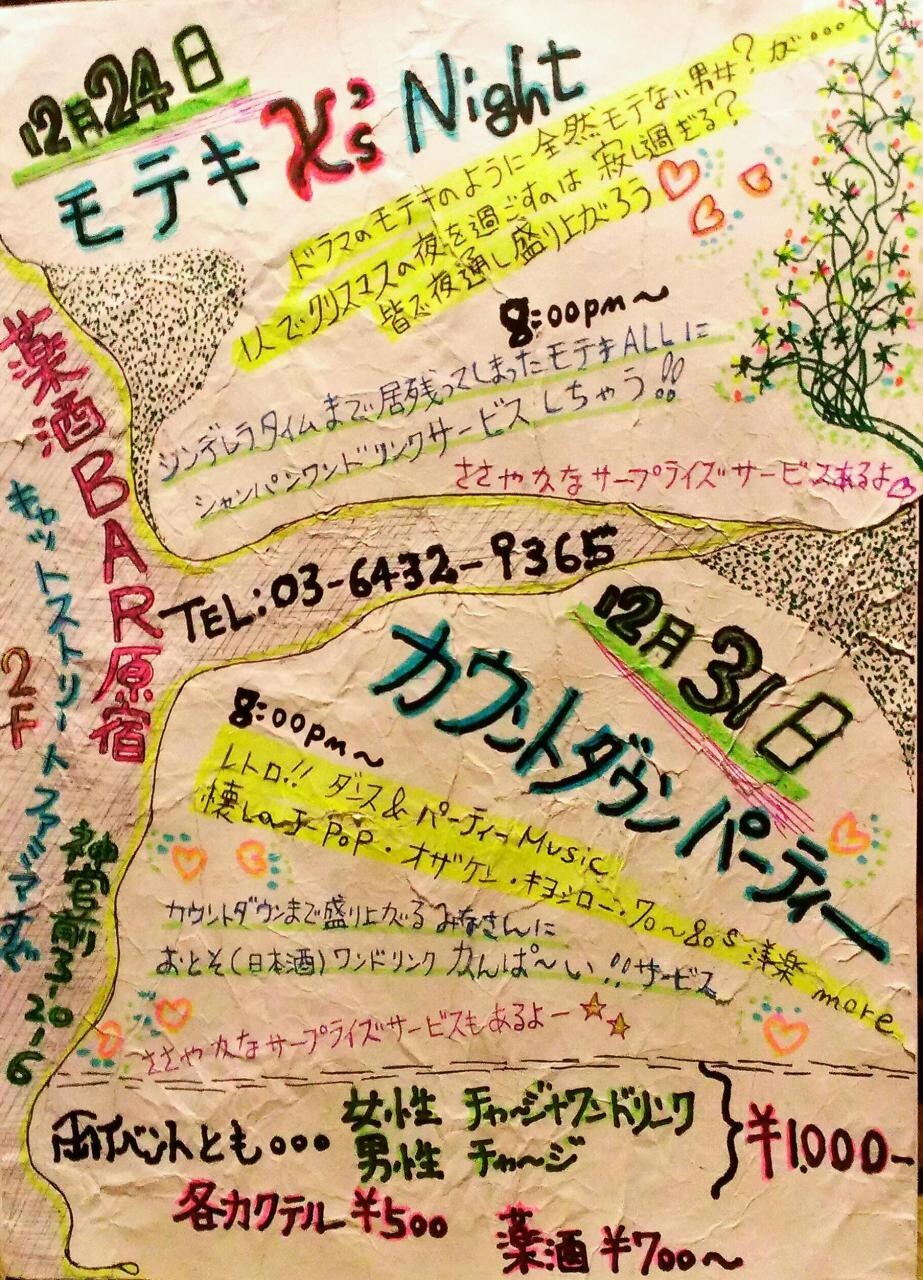 12月24日
モテキ K's Night
ドラマのモテキのように全然モテない男女?が…
1人でクリスマスの夜を過ごすのは寂し過ぎる?
皆で夜通し盛り上がろう
8:00pm〜
シンデレラタイムまで居残ってしまったモテキALLに
シャンパンワンドリンクサービスしちゃう!!
ささやかなサープライズサービスあるよ
薬酒BAR原宿
キャットストリートファミマすぐ
2F
神宮前3-20-6
TEL:03-6432-9365
12月31日
カウントダウンパーティー
8:00pm〜
レトロ!! ダンス&パーティーMusic
懐しのJ-POP・オザケン・キヨシロー・70〜80's 洋楽 more
カウントダウンまで盛り上がるみなさんに
おとそ(日本酒)ワンドリンク かんぱ〜い!!サービス
ささやかなサープライズサービスもあるよー
両イベントとも… 女性 チャージ+ワンドリンク
男性 チャージ
¥1.000-
各カクテル ¥500
薬酒 ¥700〜